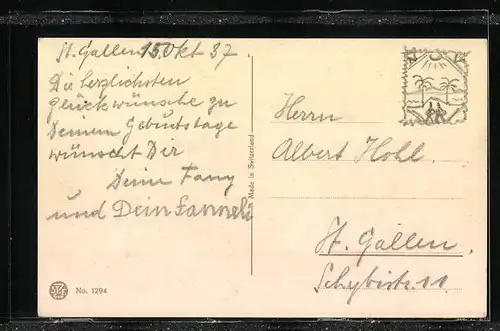 St. Gallen 15 Okt 37
Die herzlichsten
glückwünsche zu
Deinem Geburtstage
wünscht Dir
Deine Fany
und Dein
Made in Switzerland
Herrn
Albert Hohl.
St. Gallen.
No. 1294